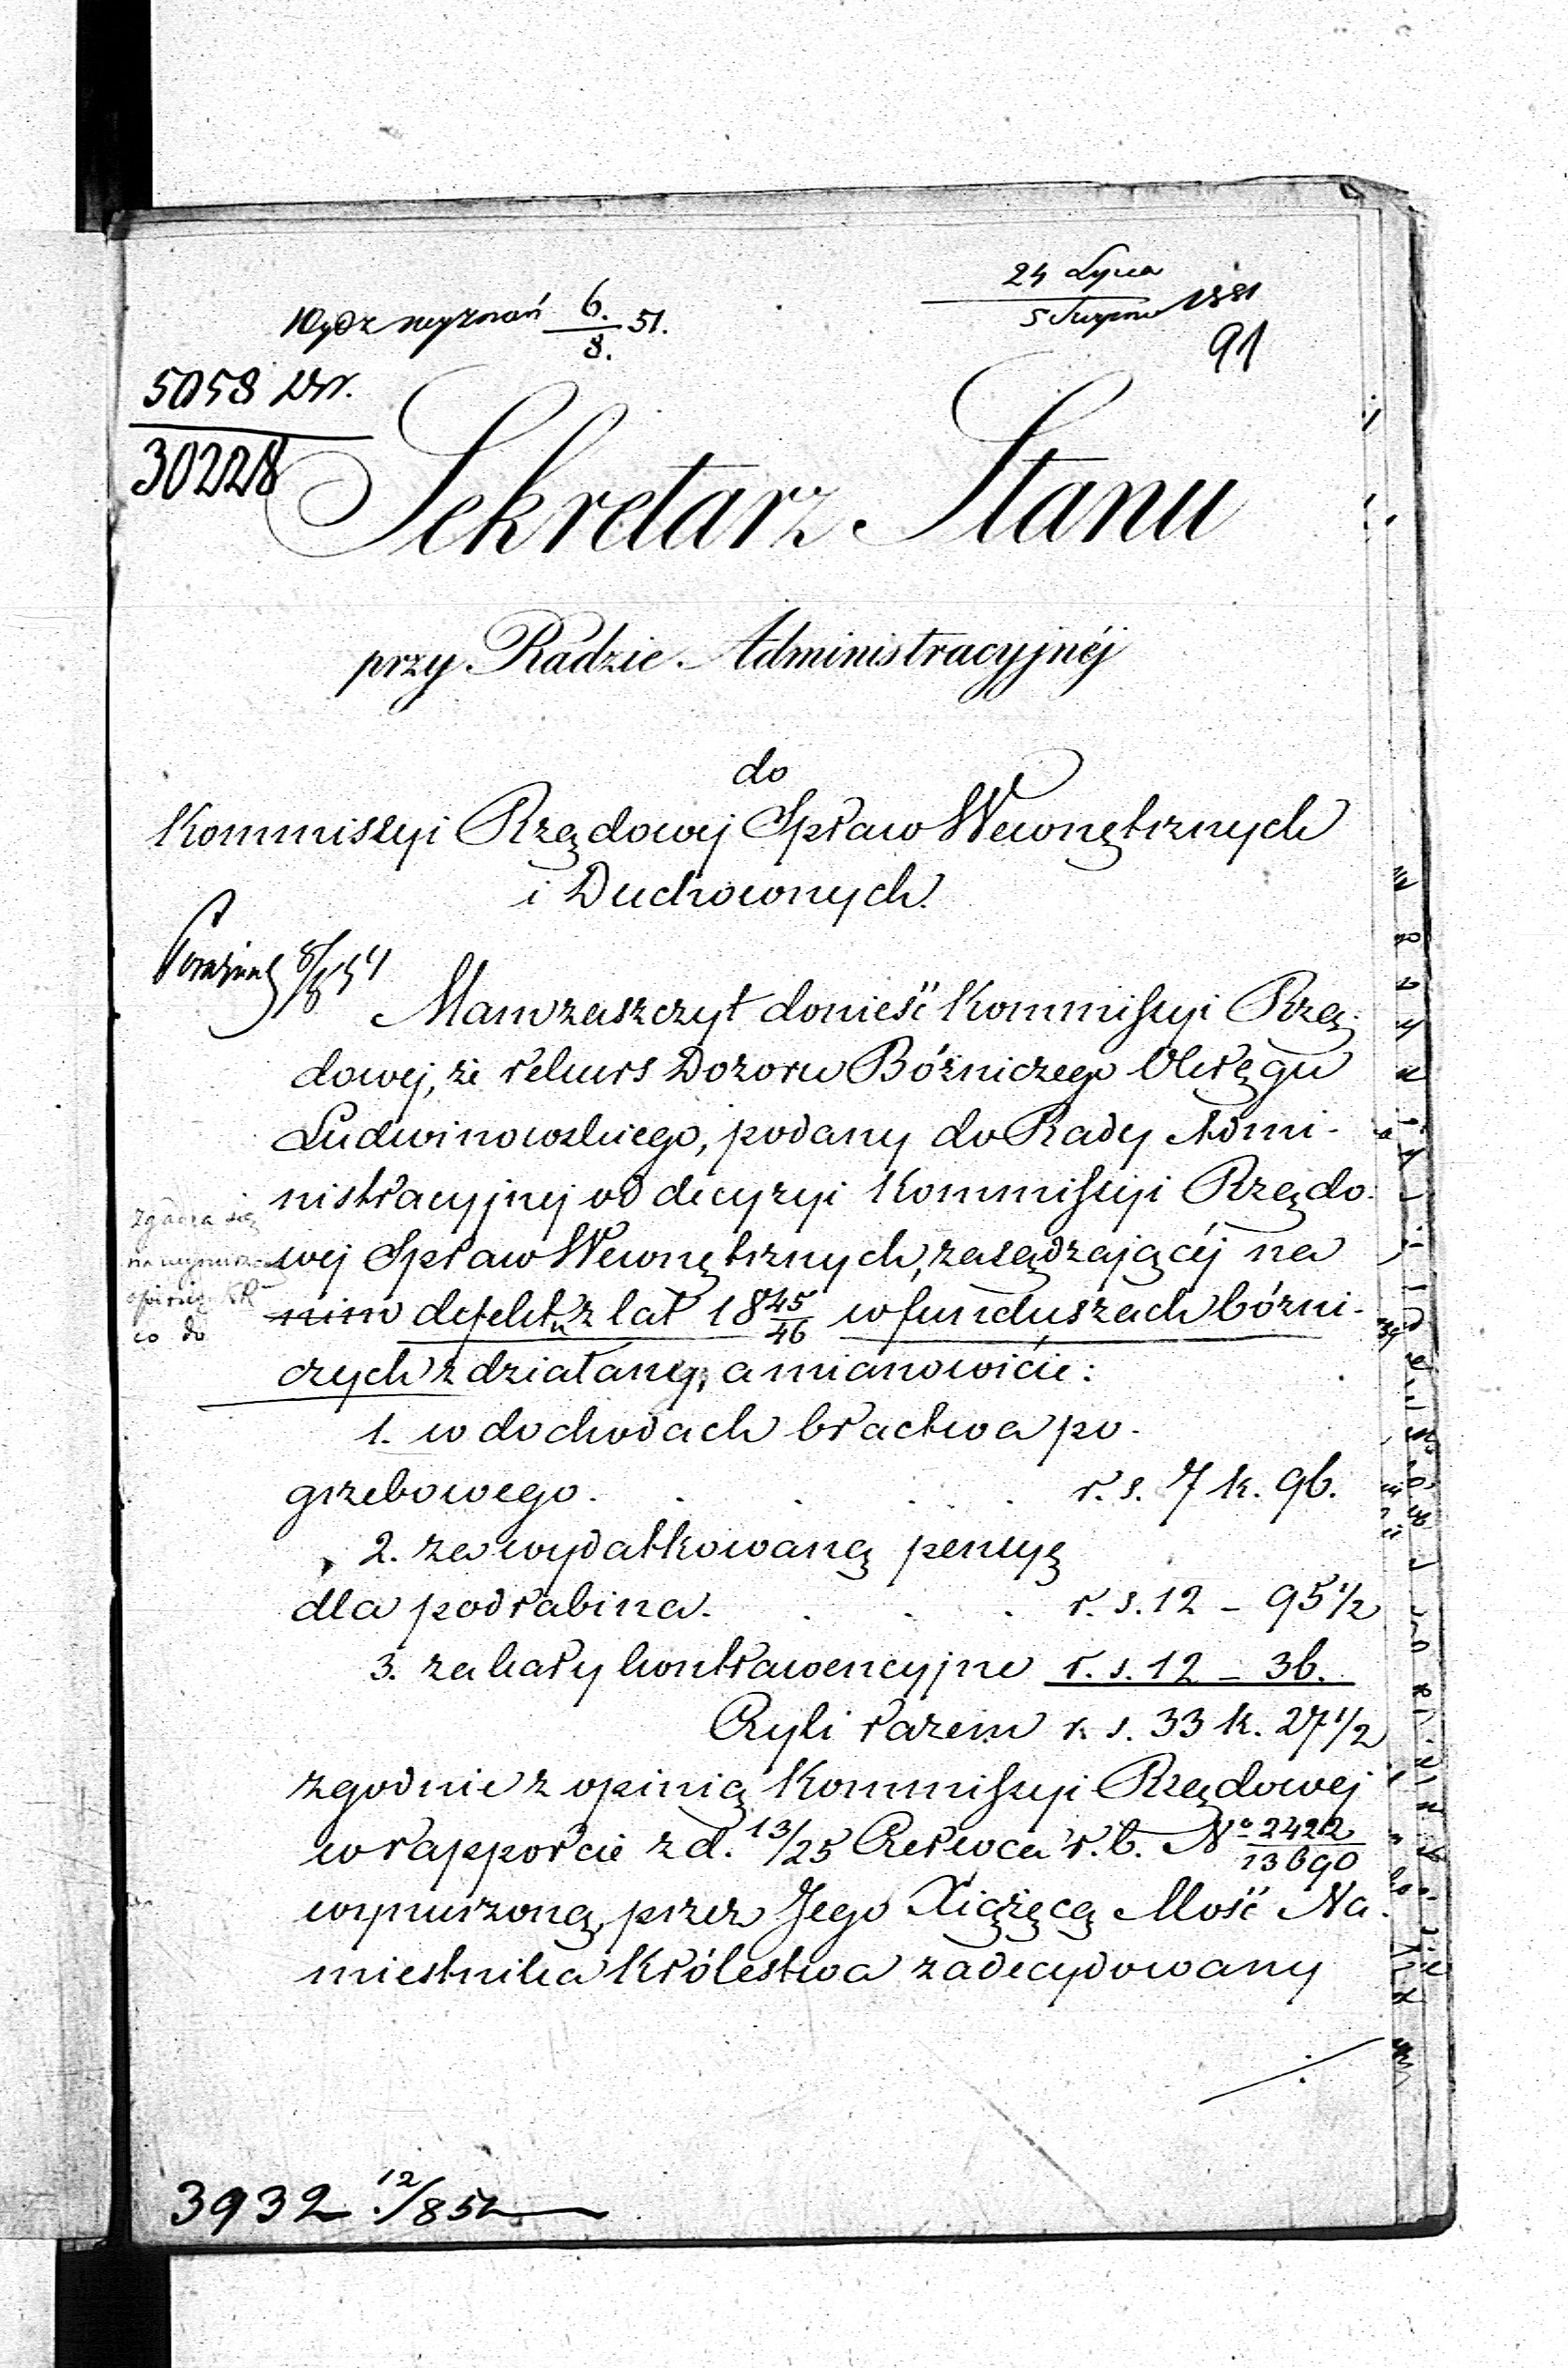 24 Lipca
5 Sierpnia 1851
91
Wydz wyznań 6./8. 51.
5058 Wr.
30228
Sekretarz Stanu
przy Radzie Administracyjnéj
do
Kommissyi Rządowej Spraw Wewnętrznych
i Duchownych.
8/8 51
Mam zaszczyt donieść Kommissyi Rzą-
dowej, że rekurs Dozoru Bóźniczego Okręgu
Ludwinowskiego, podany do Rady Admi-
nistracyjnej od decyzyi Kommissyi Rządo-
wej Spraw Wewnętrznych, zasądzającéj na
nim defekt z lat 18 45/46 w funduszach bóźni-
czych zdziałany, a mianowicie:
1. w dochodach bractwa po-
grzebowego. r. s. 7 k. 96.
2. za wydatkowaną pensyę
dla podrabina. r. s. 12 – 95 1/2
3. za kary kontrawencyjne r. s. 12 – 36.
Czyli razem r. s. 33 k. 27 1/2
zgodnie z opinią Kommissyi Rządowej
w rapporcie z d. 13/25 Czerwca r. b. No 2422/13690
wynurzoną, przez Jego Xiążęcą Mość Na-
miestnika Królestwa zadecydowany
Zgadza się
co do
3932 12/8 51